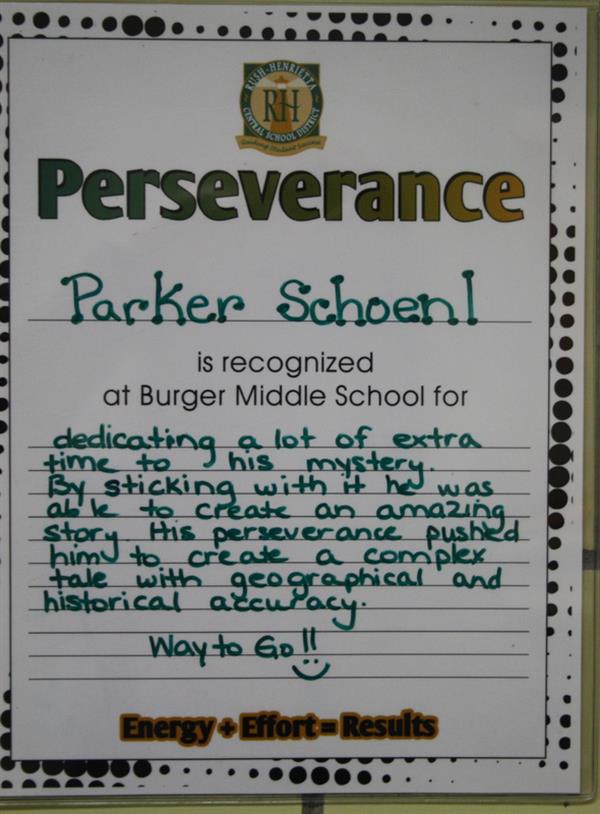 RUSH-HENRIETTA
RH
CENTRAL SCHOOL DISTRICT
Guiding Student Success
Perseverance
Parker Schoenl
is recognized
at Burger Middle School for
dedicating a lot of extra
time to his mystery.
By sticking with it he was
able to create an amazing
story. His perseverance pushed
him to create a complex
tale with geographical and
historical accuracy.
Way to Go!!
Energy + Effort = Results